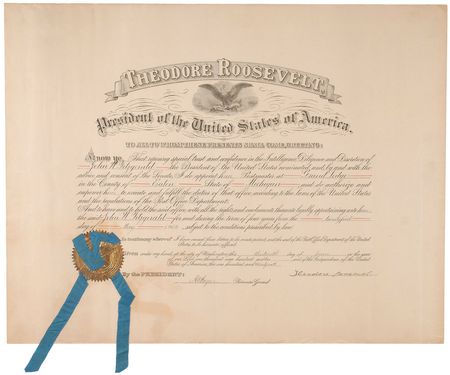 THEODORE ROOSEVELT,
President of the United States of America.
TO ALL TO WHOM THESE PRESENTS SHALL COME, GREETING:
Know ye, That reposing special trust and confidence in the Intelligence, Diligence and Discretion of
John W. Fitzgerald the President of the United States nominated and by and with the
advice and consent of the Senate, I do appoint him Postmaster at Grand Ledge
in the County of Eaton State of Michigan and do authorize and
empower him to execute and fulfil the duties of that office according to the laws of the United States
and the regulations of the Post Office Department;
And to have and to hold the said office, with all the rights and emoluments thereunto legally appertaining unto him
the said John W. Fitzgerald for and during the term of four years from the
day of May subject to the conditions prescribed by law.
In testimony whereof I have caused these letters to be made patent, and the seal of the Post Office Department of the United
States to be hereunto affixed.
Given under my hand, at the city of Washington, this day of in the year
of our Lord one thousand nine hundred and and of the Independence of the United
States of America, the one hundred and
By the PRESIDENT:
Theodore Roosevelt
Postmaster General